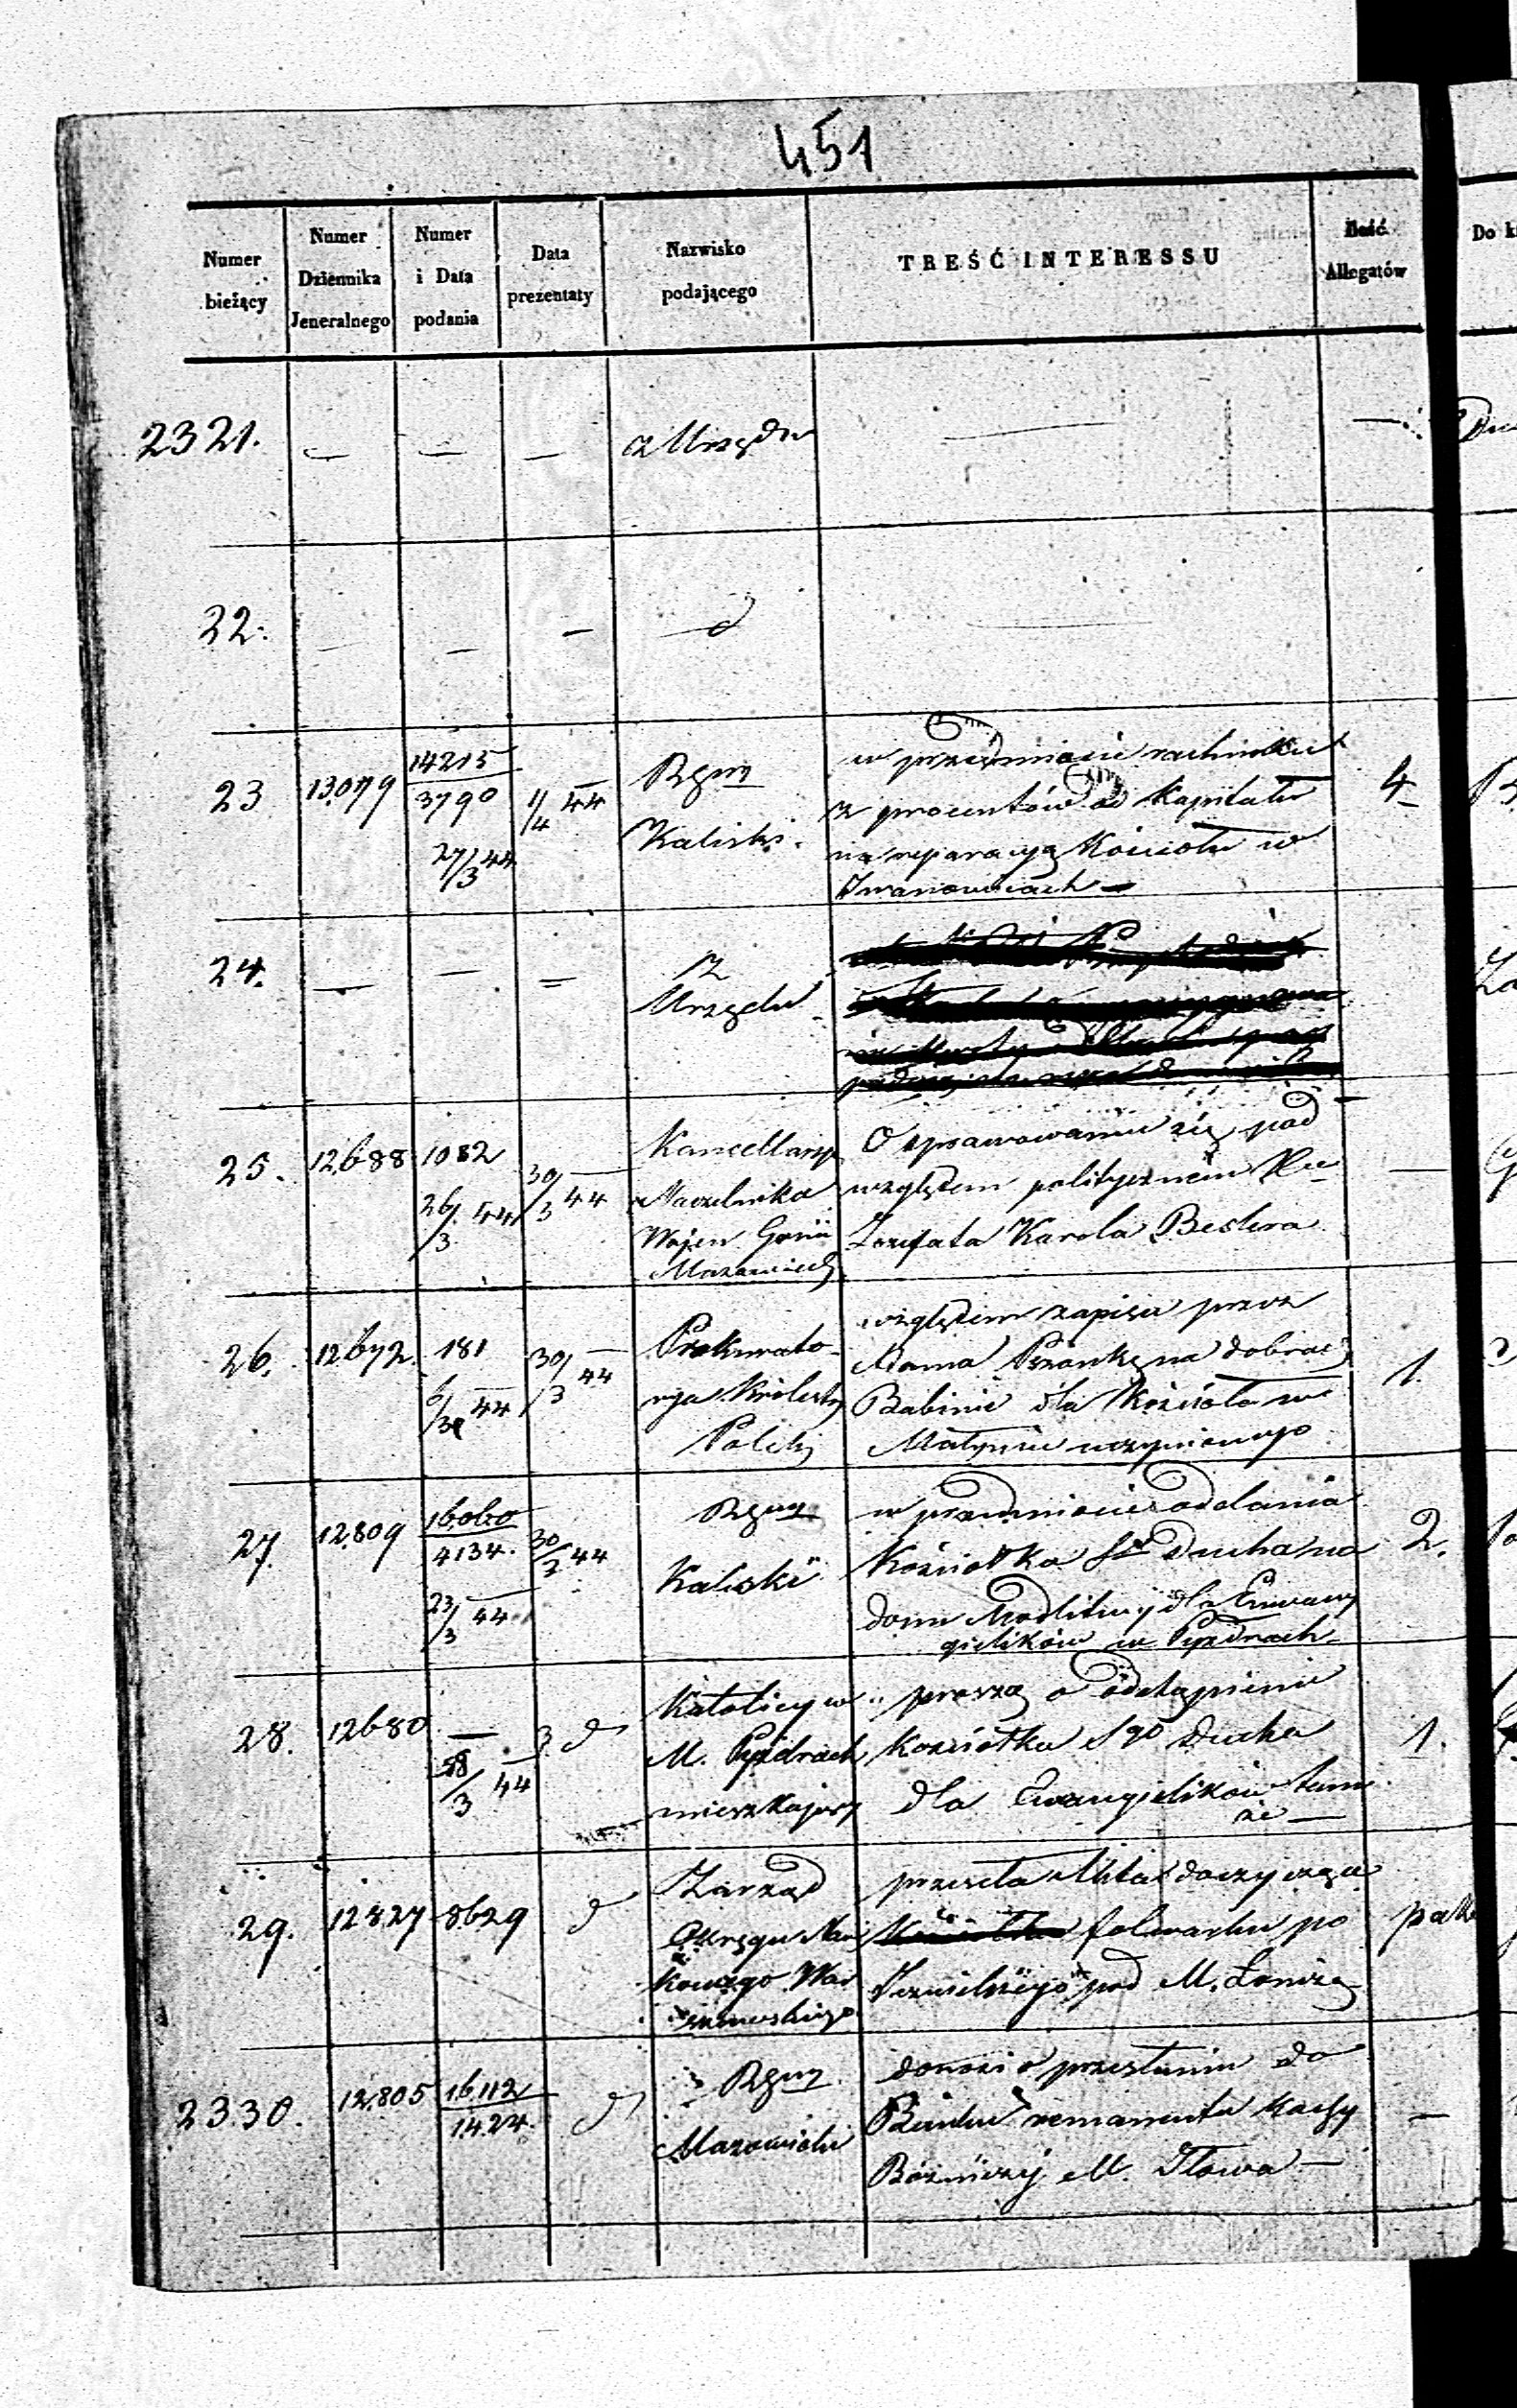 451
Numer bieżący
Numer Dziennika Jeneralnego
Numer i Data podania
Data prezentaty
Nazwisko podającego
TREŚĆ INTERESSU
Ilość Allegatów
Do k
2321. — — — z Urzędu — —
22. — — — d —
23 13079 14215/3790 27/3 44 1/4 44 Rgm Kaliski. 4
w przedmiocie rachunku
z procentów od Kapitału
na reparacyą Kościoła w
Iwanowicach —
24. — — = z Urzędu
25. 12688 1082 26/3 44 30/3 44 —
Kancellarya
Naczelnika
Wojen Gernii
Mazowieck
O sprawowaniu się pod
względem politycznem
Jozefata Karola Beslera
26. 12672. 181 44 30/3 44 1.
Prokurato-
rya Królestw
Polsk
względem zapisu przez
Adama na dobrach
Babinie dla Kościoła w
Małyniu uczynionego
27. 12809 16060/4134. 23/3 44 30/3 44 Rgm Kaliski 2.
w przedmiocie oddania
Kościołka Sgo Ducha na
dom Modlitwy dla Ewan
gielików w Pyzdrach
28. 12680 — /3 44 3 d 1.
Katolicy w
M. Pyzdrach
mieszkający
proszą o odstąpienie
Kościołka Sgo Ducha
dla Ewangielików tam
że —
29. 12827 8629 d
Zarząd
Okręgu Nau
kowego War
szawskiego
przesyła Akta doczyczące
folwarku po
Jezuickiego pod M. Łomżą
2330. 12805 16112/1424. d Rgm Mazowiecki —
donosi o przesłaniu do
Banku remanentu Kassy
Bóżniczej M. Iłowa —